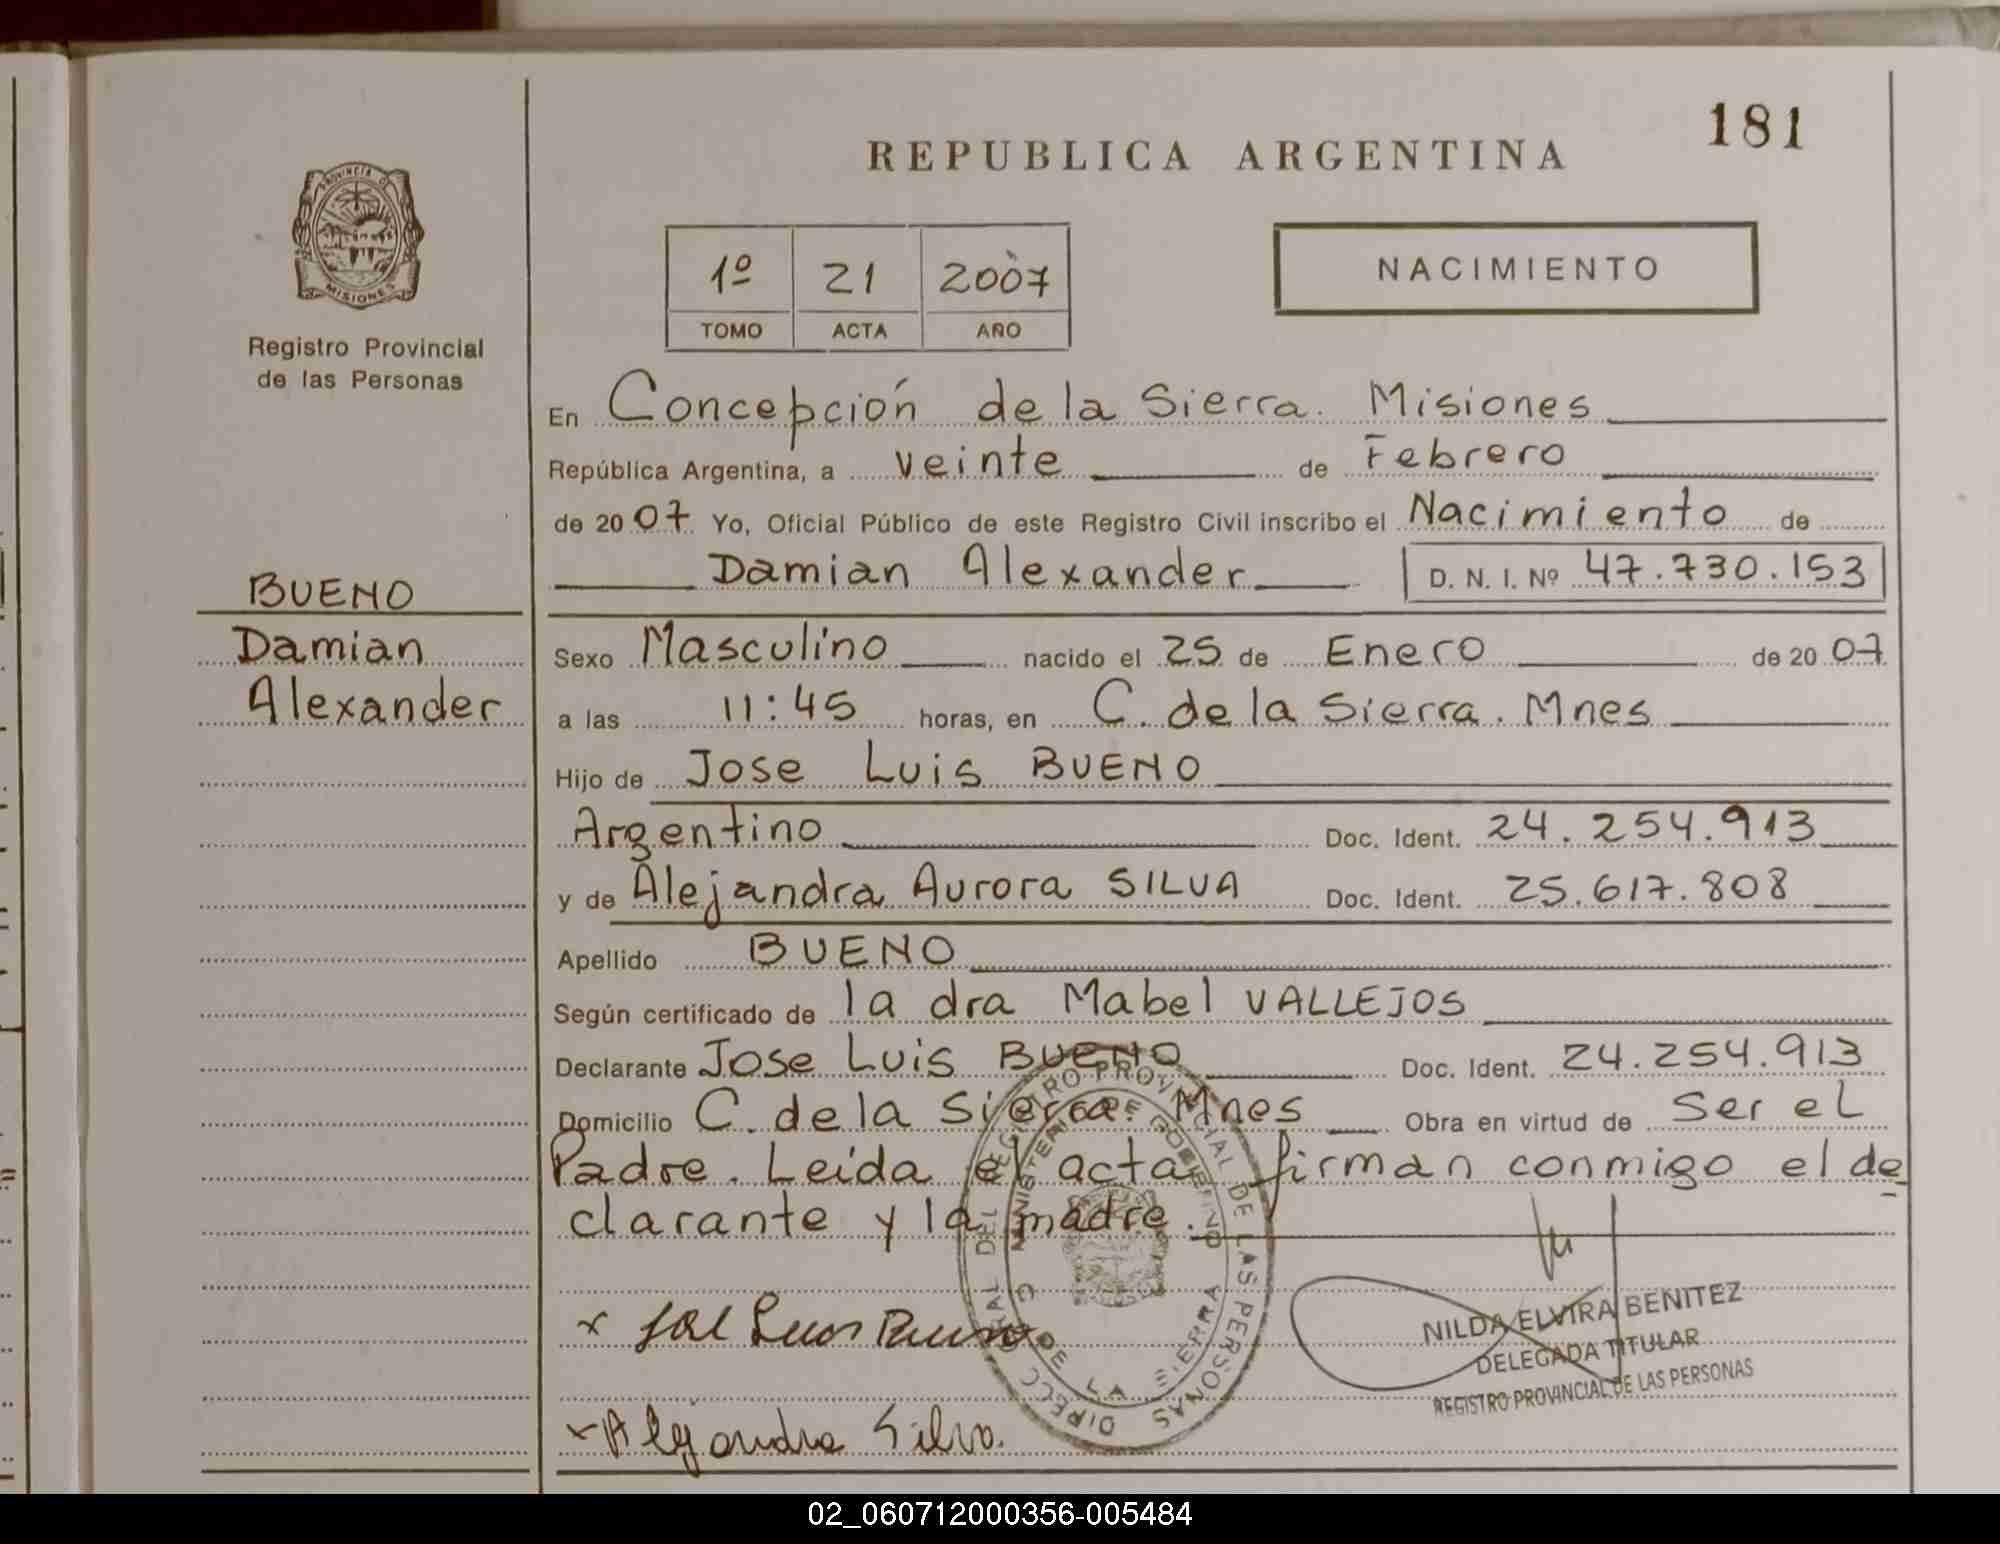 181
REPUBLICA ARGENTINA
PROVINCIA DE
MISIONES
Registro Provincial
de las Personas
1º 21 2007
TOMO ACTA AÑO
NACIMIENTO
En Concepción de la Sierra. Misiones
República Argentina, a veinte de Febrero
de 2007 Yo, Oficial Público de este Registro Civil inscribo el Nacimiento de
Damian Alexander D. N. I. Nº 47.730.153
BUENO
Damian
Alexander
Sexo Masculino nacido el 25 de Enero de 2007
a las 11:45 horas, en C. de la Sierra. Mnes
Hijo de Jose Luis BUENO
Argentino Doc. Ident. 24.254.913
y de Alejandra Aurora SILVA Doc. Ident. 25.617.808
Apellido BUENO
Según certificado de la dra Mabel VALLEJOS
Declarante Jose Luis BUENO Doc. Ident. 24.254.913
Domicilio C. de la Sierra. Mnes Obra en virtud de Ser el
Padre. Leida el acta firman conmigo el de
clarante y la madre.
x Jose Luis Bueno
x Alejandra Silva.
DIRECC. GRAL DEL REGISTRO PROVINCIAL DE LAS PERSONAS
MINISTERIO DE GOBIERNO
C. DE LA SIERRA
NILDA ELVIRA BENITEZ
DELEGADA TITULAR
REGISTRO PROVINCIAL DE LAS PERSONAS
02_060712000356-005484